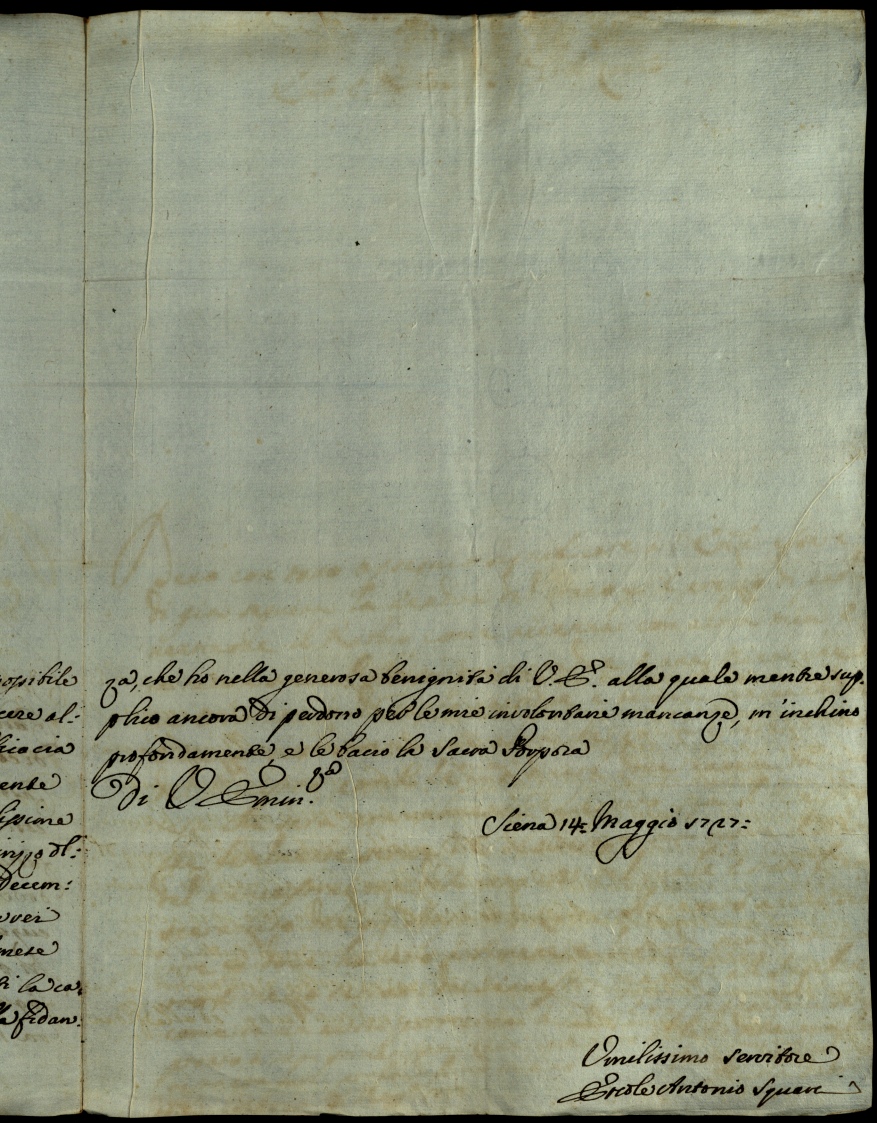 possibile
cere al:
ente
issime
decem:
vver
mese
i la ca:
la fidan:
za, che ho nella generosa benignità di V. E. alla quale mentre sup-
plico ancora di perdono per le mie involontarie mancanze, m'inchino
profondamente, e le bacio la Sacra Porpora
Di V. Emin.za
Siena 14: Maggio 1727:
Umilissimo Servitore
Ercole Antonio